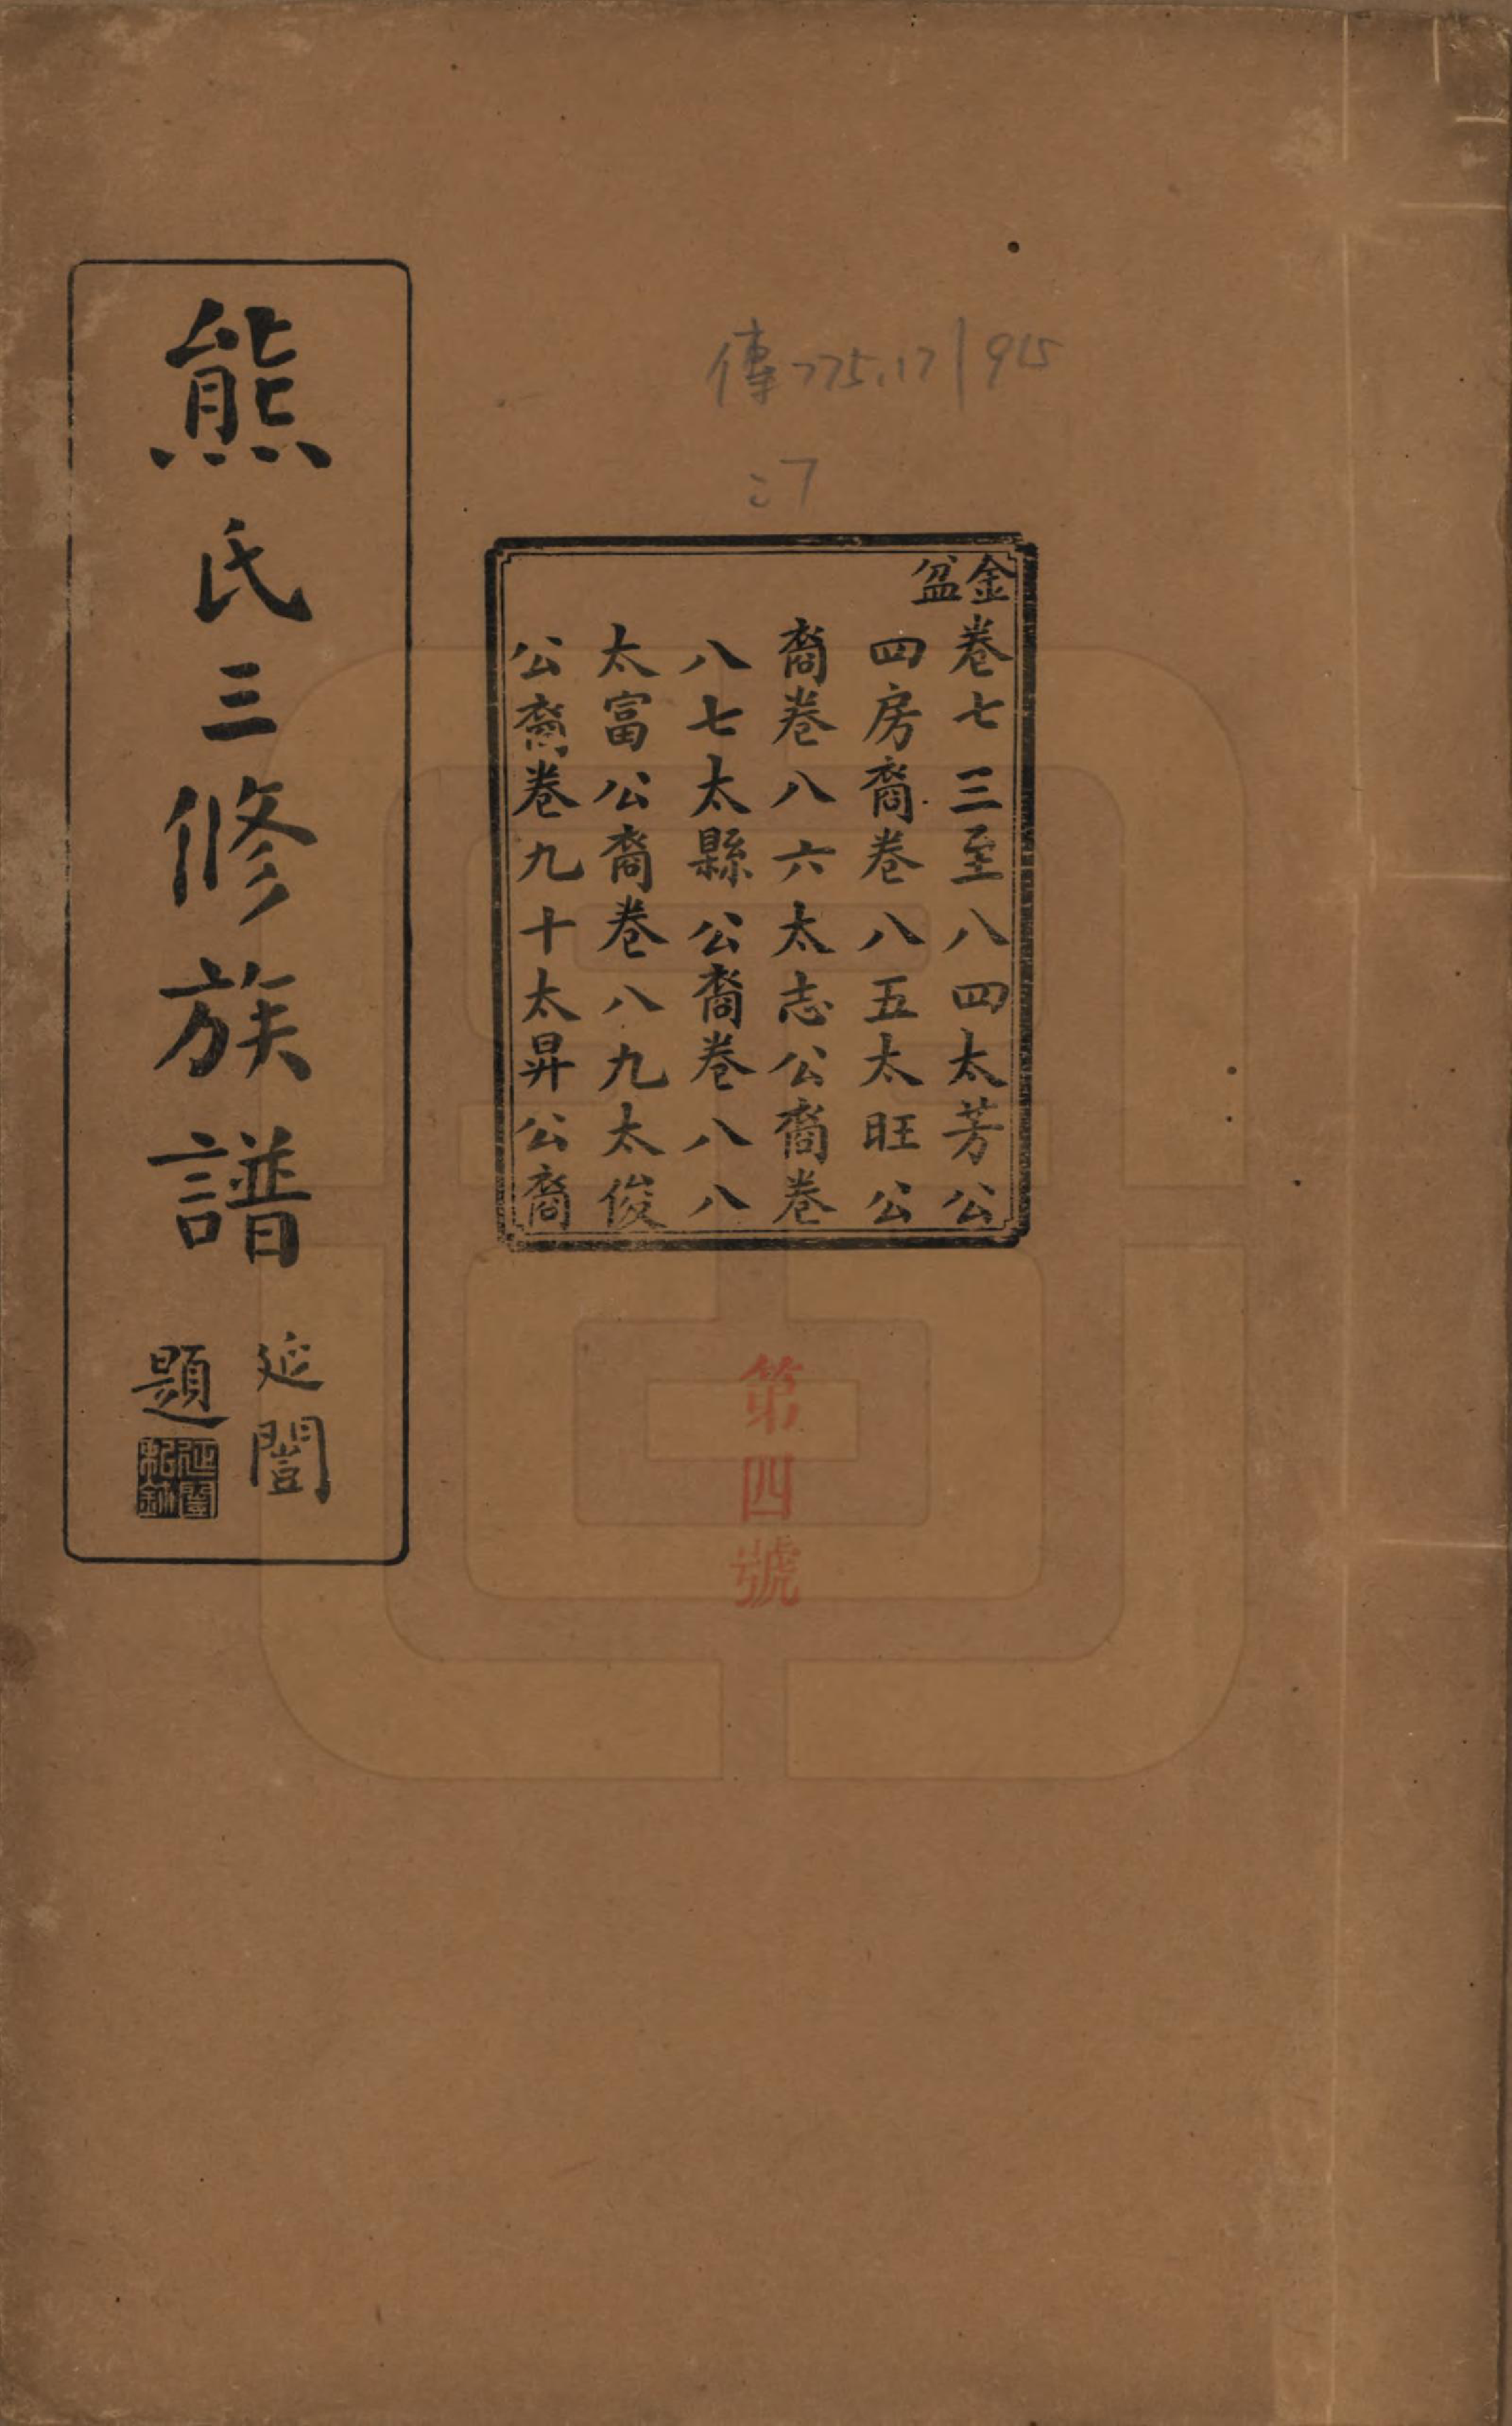 傳775.17/915
:7
金盆
卷七三至八四太芳公
四房裔卷八五太旺公
裔卷八六太志公裔卷
八七太縣公裔卷八八
太富公裔卷八九太俊
公裔卷九十太昇公裔
第四號
熊氏三修族譜
延闓
題